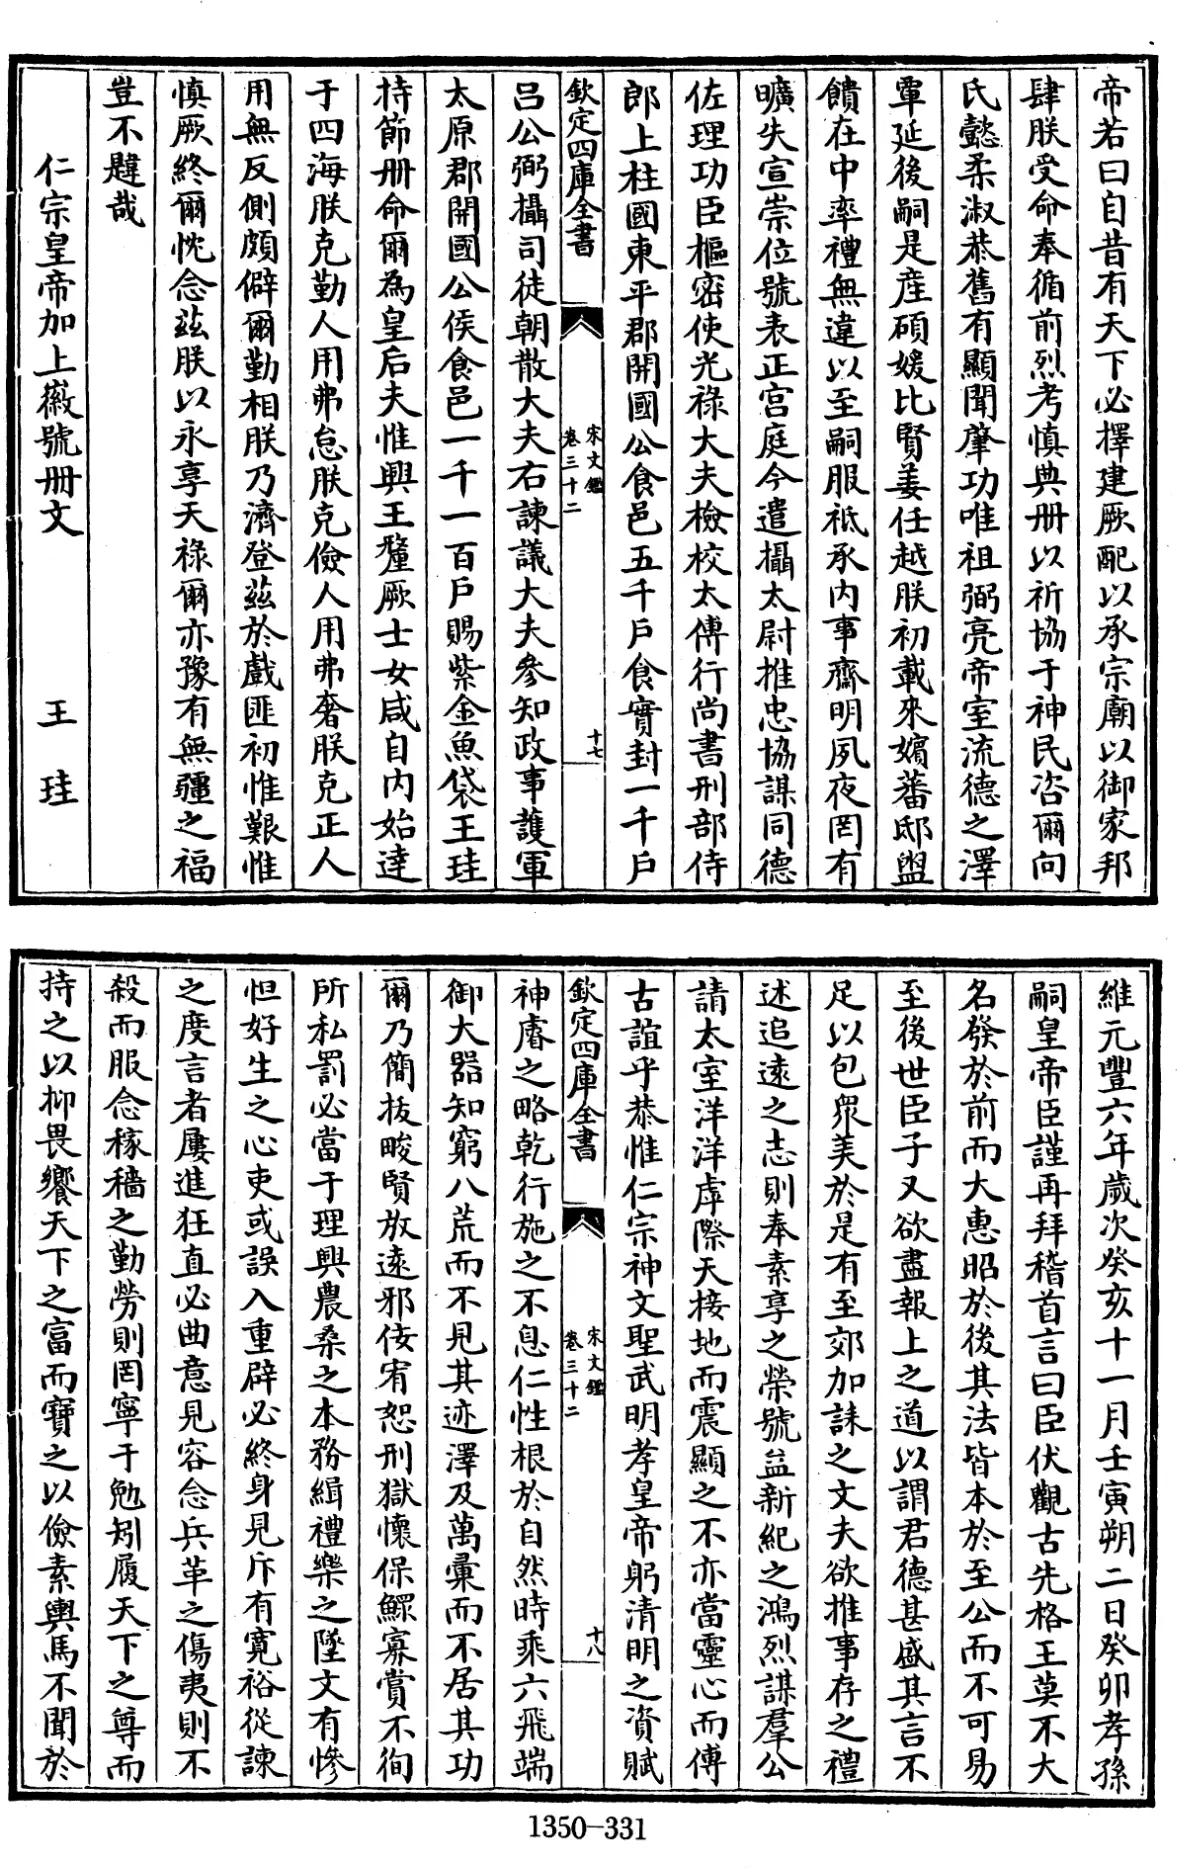 帝若曰自昔有天下必擇建厥配以承宗廟以御家邦
肆朕受命奉循前烈考慎典冊以祈協于神民咨爾向
氏懿柔淑恭舊有顯聞肇功唯祖弼亮帝室流德之澤
覃延後嗣是產碩媛比賢姜任越朕初載來嬪蕃邸盥
饋在中率禮無違以至嗣服祗承内事齋明夙夜罔有
曠失宣崇位號表正宮庭今遣攝太尉推忠協謀同德
佐理功臣樞密使光祿大夫檢校太傅行尚書刑部侍
郎上柱國東平郡開國公食邑五千戶食實封一千戶
欽定四庫全書
宋文鑑
卷三十二
十七
吕公弼攝司徒朝散大夫右諫議大夫參知政事護軍
太原郡開國公侯食邑一千一百戶賜紫金魚袋王珪
持節冊命爾為皇后夫惟興王釐厥士女咸自内始達
于四海朕克勤人用弗怠朕克儉人用弗奢朕克正人
用無反側頗僻爾勤相朕乃濟登茲於戲匪初惟艱惟
慎厥終爾忱念茲朕以永享天祿爾亦豫有無疆之福
豈不韙哉
仁宗皇帝加上徽號冊文 王珪
維元豐六年歲次癸亥十一月壬寅朔二日癸卯孝孫
嗣皇帝臣謹再拜稽首言曰臣伏觀古先格王莫不大
名發於前而大惠昭於後其法皆本於至公而不可易
至後世臣子又欲盡報上之道以謂君德甚盛其言不
足以包眾美於是有至郊加誄之文夫欲推事存之禮
述追遠之志則奉素享之榮號益新紀之鴻烈謀羣公
請太室洋洋虖際天接地而震顯之不亦當靈心而傳
古誼乎恭惟仁宗神文聖武明孝皇帝躬清明之資賦
欽定四庫全書
宋文鑑
卷三十二
十八
神睿之略乾行施之不息仁性根於自然時乘六飛端
御大器知窮八荒而不見其迹澤及萬彙而不居其功
爾乃簡拔畯賢放遠邪佞宥恕刑獄懷保鰥寡賞不徇
所私罰必當于理興農桑之本務緝禮樂之墜文有慘
怛好生之心吏或誤入重辟必終身見斥有寬裕從諫
之度言者屢進狂直必曲意見容念兵革之傷夷則不
殺而服念稼穡之勤勞則罔寧于勉矧履天下之尊而
持之以抑畏饗天下之富而寶之以儉素輿馬不聞於
1350-331